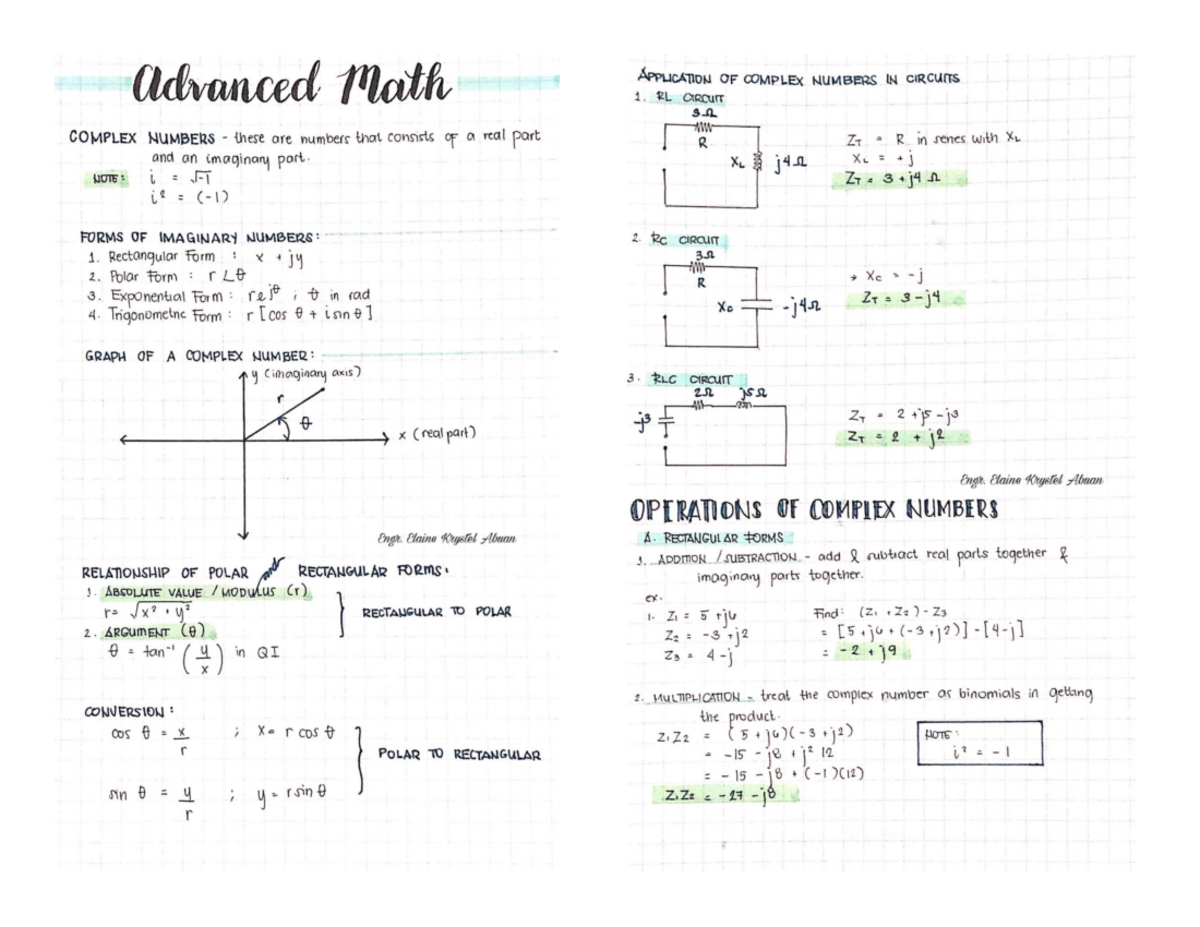 Advanced Math
COMPLEX NUMBERS - these are numbers that consists of a real part
and an imaginary part.
NOTE: i = √-1
i² = (-1)
FORMS OF IMAGINARY NUMBERS:
1. Rectangular Form : x + jy
2. Polar Form : r∠θ
3. Exponential Form : re^jθ ; θ in rad
4. Trigonometric Form : r [cos θ + i sin θ]
GRAPH OF A COMPLEX NUMBER:
y (imaginary axis)
r
θ
x (real part)
Engr. Elaine Krystel Abuan
RELATIONSHIP OF POLAR and RECTANGULAR FORMS:
1. ABSOLUTE VALUE / MODULUS (r)
r = √x² + y²
2. ARGUMENT (θ)
θ = tan⁻¹ (y/x) in QI
RECTANGULAR TO POLAR
CONVERSION:
cos θ = x/r ; x = r cos θ
sin θ = y/r ; y = r sin θ
POLAR TO RECTANGULAR
APPLICATION OF COMPLEX NUMBERS IN CIRCUITS
1. RL CIRCUIT
3Ω
R
XL j4Ω
ZT = R in series with XL
XL = +j
ZT = 3 + j4 Ω
2. RC CIRCUIT
3Ω
R
Xc -j4Ω
* Xc = -j
ZT = 3 - j4
3. RLC CIRCUIT
2Ω j5Ω
-j3
ZT = 2 + j5 - j3
ZT = 2 + j2
Engr. Elaine Krystel Abuan
OPERATIONS OF COMPLEX NUMBERS
A. RECTANGULAR FORMS
1. ADDITION / SUBTRACTION - add & subtract real parts together &
imaginary parts together.
ex.
1. Z1 = 5 + j6
Z2 = -3 + j2
Z3 = 4 - j
Find: (Z1 + Z2) - Z3
= [5 + j6 + (-3 + j2)] - [4 - j]
= -2 + j9
2. MULTIPLICATION - treat the complex number as binomials in getting
the product.
Z1Z2 = (5 + j6)(-3 + j2)
= -15 - j8 + j² 12
= -15 - j8 + (-1)(12)
Z1Z2 = -27 - j8
NOTE:
i² = -1